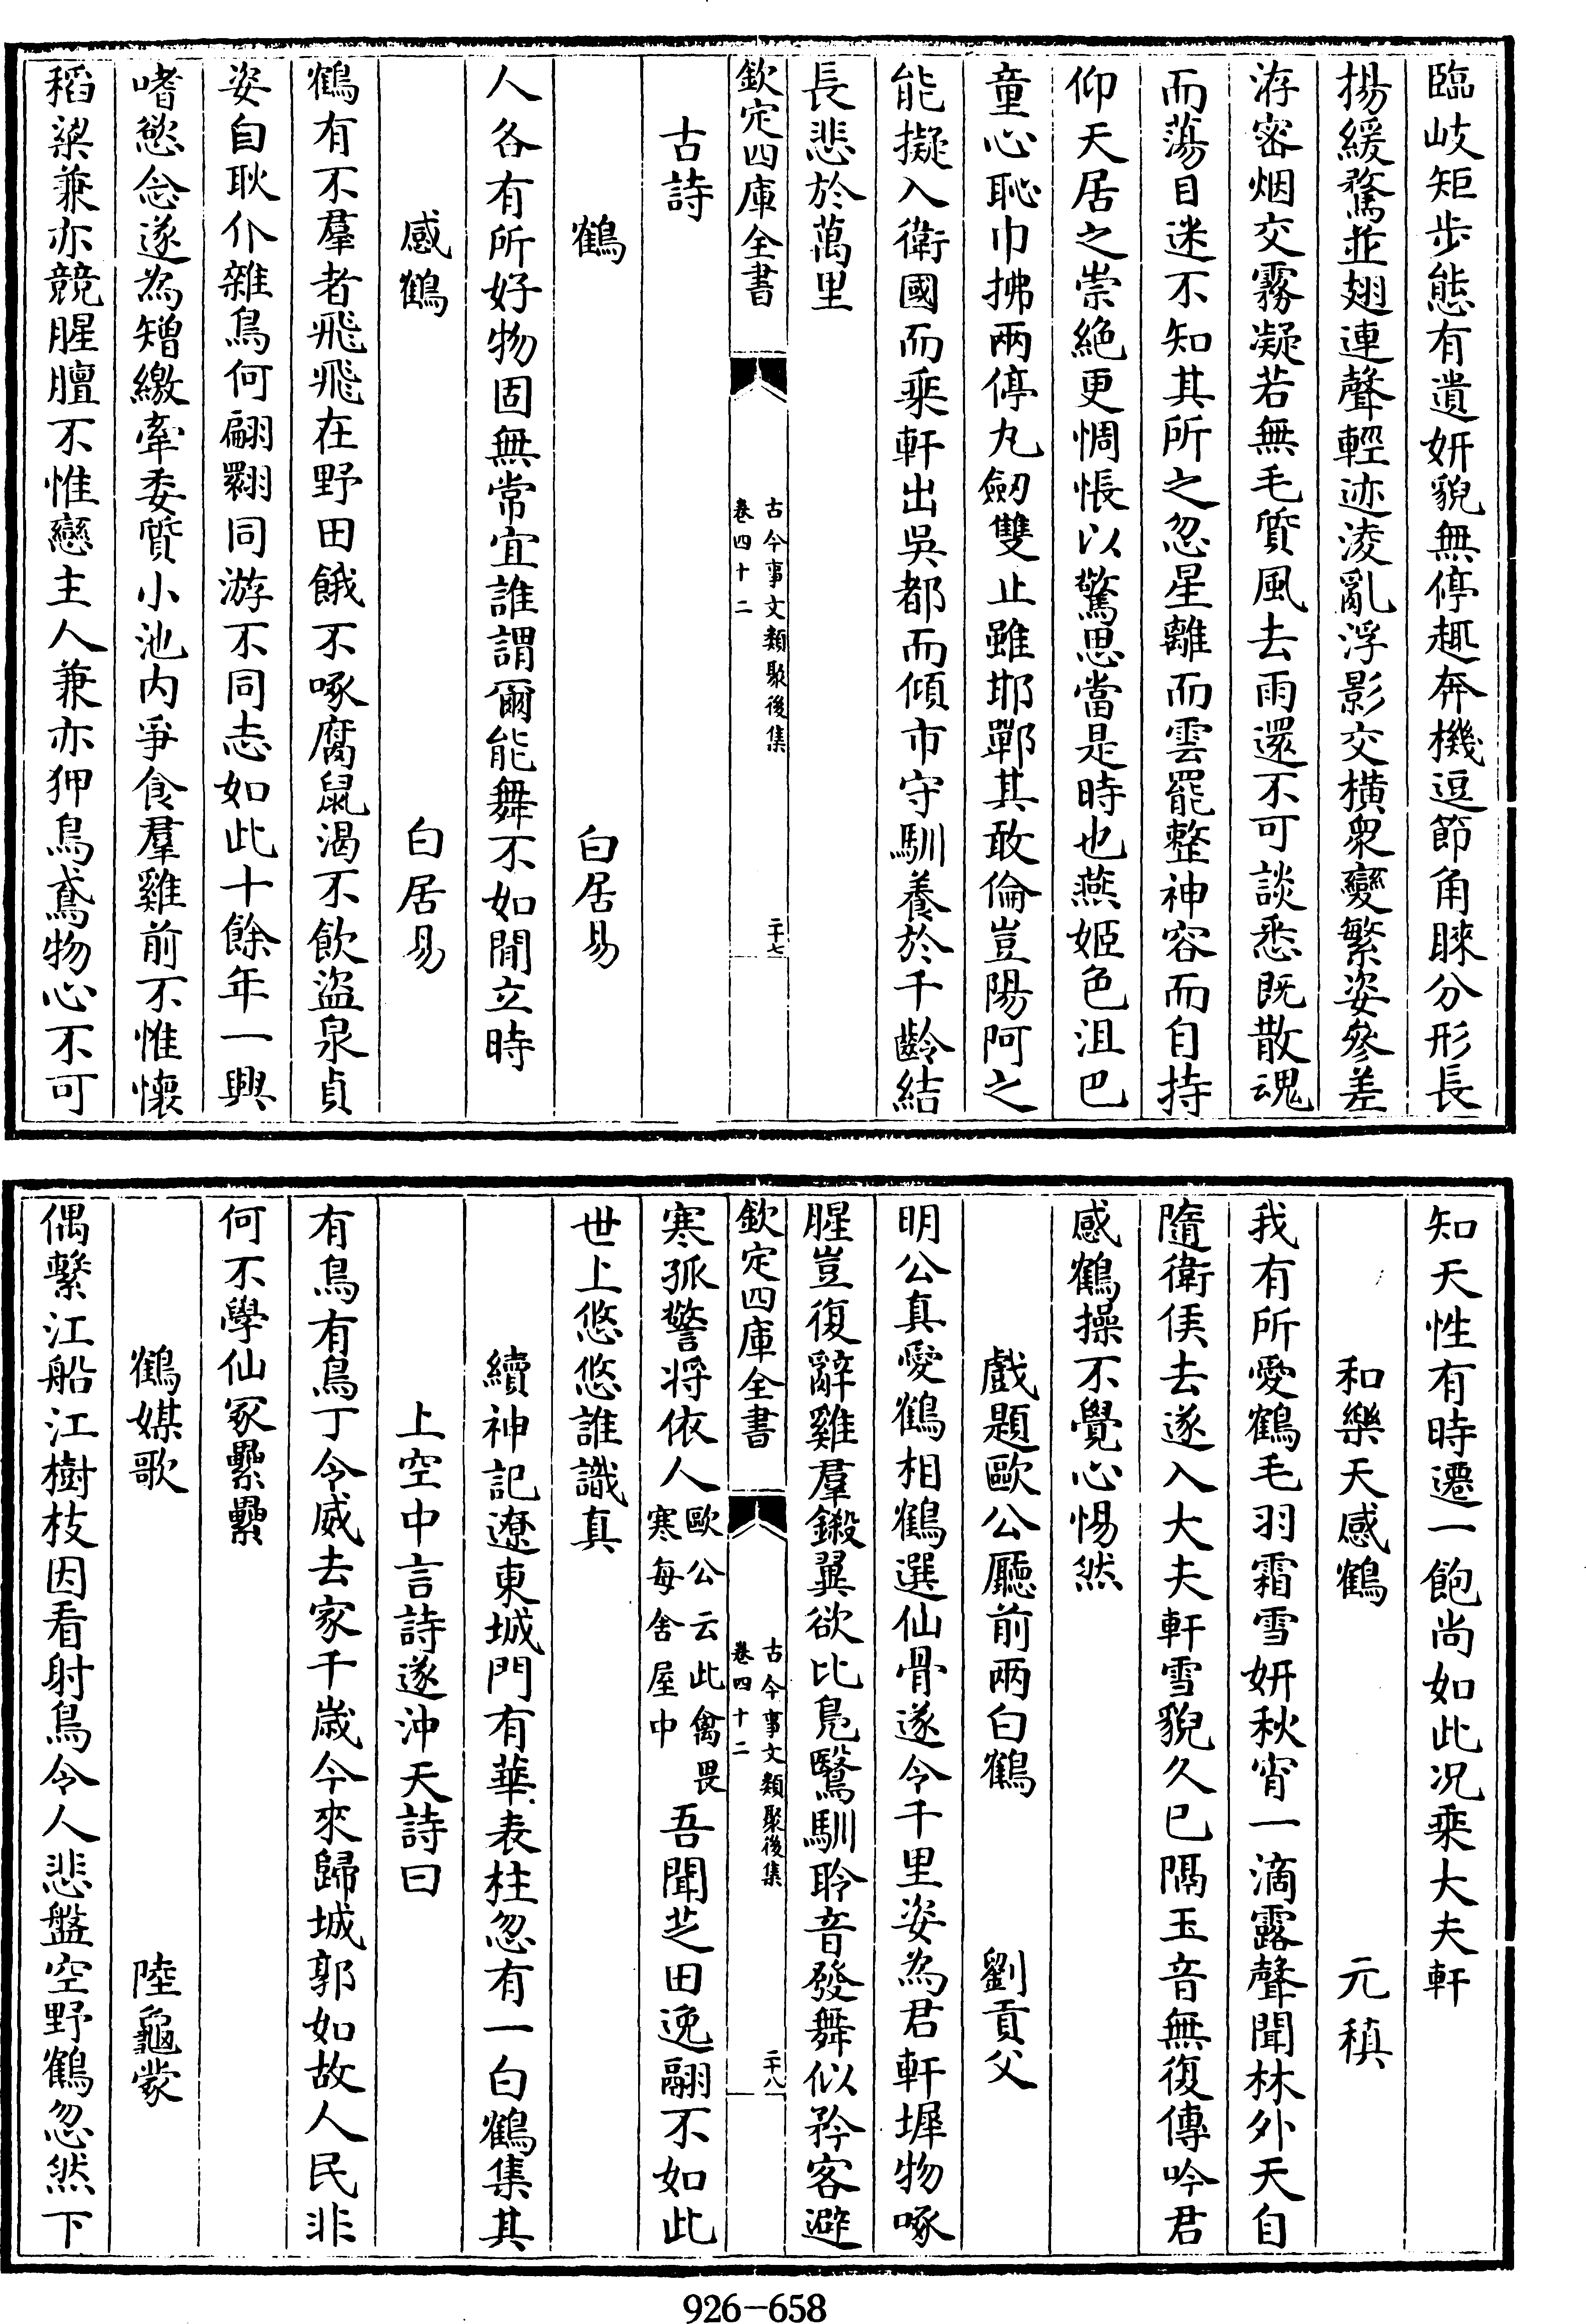 臨岐矩步態有遺妍貌無停趣奔機逗節角睞分形長
揚緩騖並翅連聲輕迹淩亂浮影交橫衆變繁姿參差
洊密烟交霧凝若無毛質風去雨還不可談悉既散魂
而蕩目迷不知其所之忽星離而雲罷整神容而自持
仰天居之崇絶更惆悵以驚思當是時也燕姬色沮巴
童心恥巾拂兩停丸劒雙止雖邯鄲其敢倫豈陽阿之
能擬入衛國而乘軒出吳都而傾市守馴養於千齡結
長悲於萬里
欽定四庫全書
古今事文類聚後集
卷四十二
二十七
古詩
鶴 白居易
人各有所好物固無常宜誰謂爾能舞不如閒立時
感鶴 白居易
鶴有不羣者飛飛在野田餓不啄腐鼠渴不飲盜泉貞
姿自耿介雜鳥何翩翾同游不同志如此十餘年一興
嗜慾念遂為矰繳牽委質小池内爭食羣雞前不惟懷
稻粱兼亦競腥膻不惟戀主人兼亦狎烏鳶物心不可
知天性有時遷一飽尚如此况乘大夫軒
和樂天感鶴 元稹
我有所愛鶴毛羽霜雪妍秋宵一滴露聲聞林外天自
隨衛侯去遂入大夫軒雪貌久已隔玉音無復傳吟君
感鶴操不覺心惕然
戲題歐公廳前兩白鶴 劉貢父
明公真愛鶴相鶴選仙骨遂令千里姿為君軒墀物啄
腥豈復辭雞羣鎩翼欲比鳧鷖馴聆音發舞似矜客避
欽定四庫全書
古今事文類聚後集
卷四十二
二十八
寒孤警将依人歐公云此禽畏寒每舍屋中吾聞芝田逸翮不如此
世上悠悠誰識真
續神記遼東城門有華表柱忽有一白鶴集其
上空中言詩遂沖天詩曰
有鳥有鳥丁令威去家千歳今來歸城郭如故人民非
何不學仙冢纍纍
鶴媒歌 陸龜蒙
偶繫江船江樹枝因看射鳥令人悲盤空野鶴忽然下
926-658